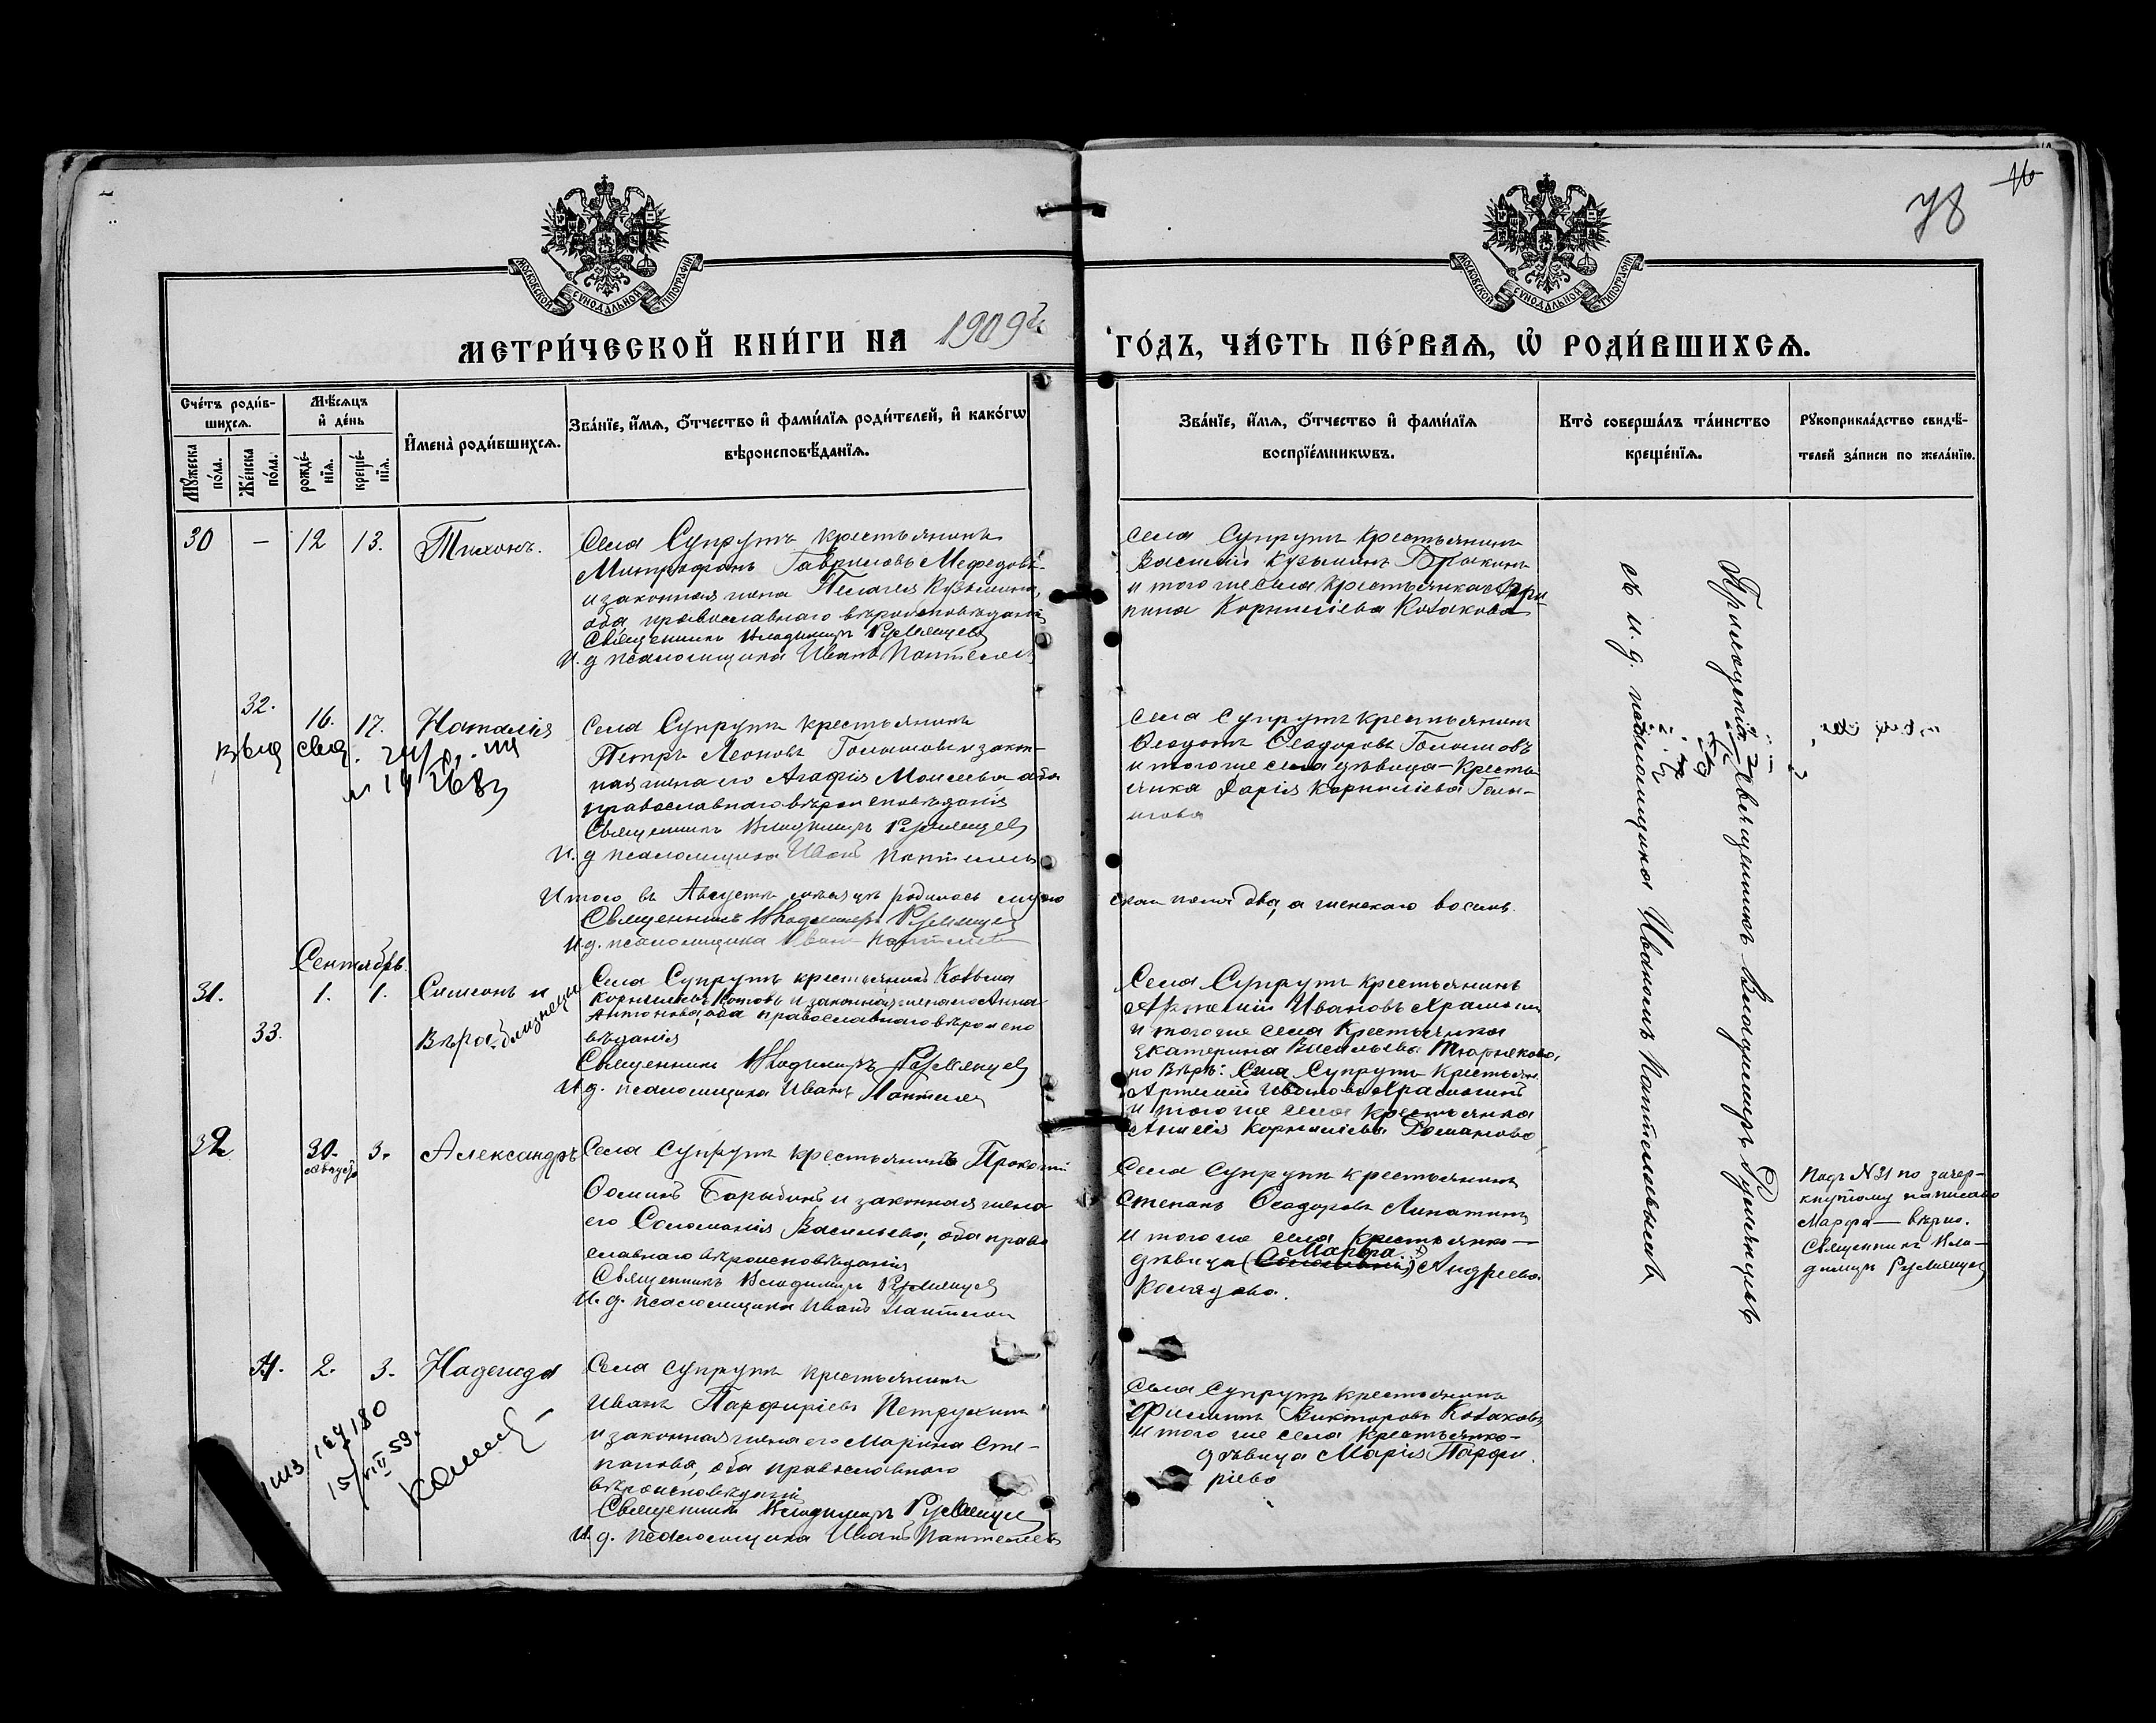 78
16
МОСКОВСКОЙ СѴНОДАЛЬНОЙ ТИПОГРАФІИ
МОСКОВСКОЙ СѴНОДАЛЬНОЙ ТИПОГРАФІИ
МЕТРИ́ЧЕСКОЙ КНИ́ГИ НА 1909й ГО́ДЪ, ЧА́СТЬ ПЕ́РВАѦ, Ѡ РОДИ́ВШИХСѦ.
Сче́тъ роди́в-
шихсѧ.
Мꙋжеска по́ла.
Же́нска по́ла.
Мѣ́сѧцъ
и де́нь
рожде́-
нїѧ.
креще́-
нїѧ.
Имена̀ роди́вшихсѧ.
Зва́нїе, и́мѧ, о́тчество и фами́лїѧ роди́телей, и како́гѡ
вѣроисповѣ́данїѧ.
Зва́нїе, и́мѧ, о́тчество и фами́лїѧ
воспрїе́мникѡвъ.
Кто̀ соверша́лъ та́инство
креще́нїѧ.
Рꙋкоприкла́дство свидѣ́-
телей за́писи по жела́нїю.
30 — 12 13. Тихонъ.
Села Супрутъ крестьянинъ
Митрофанъ Гавриловъ Мефедовъ
и законная жена Пелагея Кузьмина,
оба православнаго вѣроисповѣданія
Священникъ Владимиръ Румянцевъ
И. д псаломщика Иванъ Пантелеев
Села Супрутъ крестьянинъ
Василій Кузьминъ
и того же села крестьянка Агри-
пина Корнилiева Казакова
32. 16. 17. Наталія
Села Супрутъ крестьянинъ
Петръ Леоновъ Голишовъ и закон-
ная жена его Агафія Моисеева оба
православнаго вѣроисповѣданія
Священникъ Владимиръ Румянцевъ
И. д псаломщика Иванъ Пантелеевъ
Села Супрутъ крестьянинъ
Ѳеодотъ Ѳеодоровъ Голишовъ
и того же села дѣвица-кресть-
янка Дарія Корниліева
Итого въ Августѣ мѣсяцѣ родилось муже
скаго пола два, а женскаго восемь.
Священникъ Владимиръ Румянцевъ
И. д. псаломщика Иванъ Пантелеевъ
Сентябрь.
31. 1. 1. Симеонъ и
33. Вѣра-близнецы
Села Супрутъ крестьянинъ Козьма
Корниліевъ Котовъ и законная жена его Анна
Антонова, оба православнаго вѣроиспо
вѣданія
Священникъ Владимиръ Румянцевъ
И. д. псаломщика Иванъ Пантелеев
Села Супрутъ крестьянинъ
Артемій Ивановъ
и того же села крестьянка
Екатерина Васильева
по Вѣрѣ: Села Супрутъ крестьян.
Артемій Ивановъ
и того же села крестьянка
Анисія Корниліева Романова
32 30. Августа 3. Александръ
Села Супрутъ крестьянинъ Прокопій
Ѳоминъ Барыбинъ и законная жена
его Соломонія Васильева, оба право
славнаго вѣроисповѣданія
Священникъ Владимиръ Румянцевъ
И. д. псаломщика Иванъ Пантелеев
Села Супрутъ крестьянинъ
Степанъ Ѳеодоровъ Липатинъ
и того же села крестьянка-
дѣвица Марфа Андреева
Надъ N 31 по зачер-
кнутому написано
Марфа — вѣрно.
Священникъ Вла-
димиръ Румянцевъ
2. 3. Надежда
Села Супрутъ крестьянинъ
Иванъ Парфиріевъ Петрухинъ
и законная жена его Марина Сте-
панова, оба православнаго
вѣроисповѣданій
Священникъ Владимиръ Румянцев
И. д. псаломщика Иванъ Пантелеевъ
Села Супрутъ крестьянинъ
Филиппъ Викторовъ Казаковъ
и того же села крестьянка-
дѣвица Марія Парфи-
ріева
Священникъ Владимиръ Румянцевъ
съ и. д. псаломщика Иваномъ Пантелеевымъ